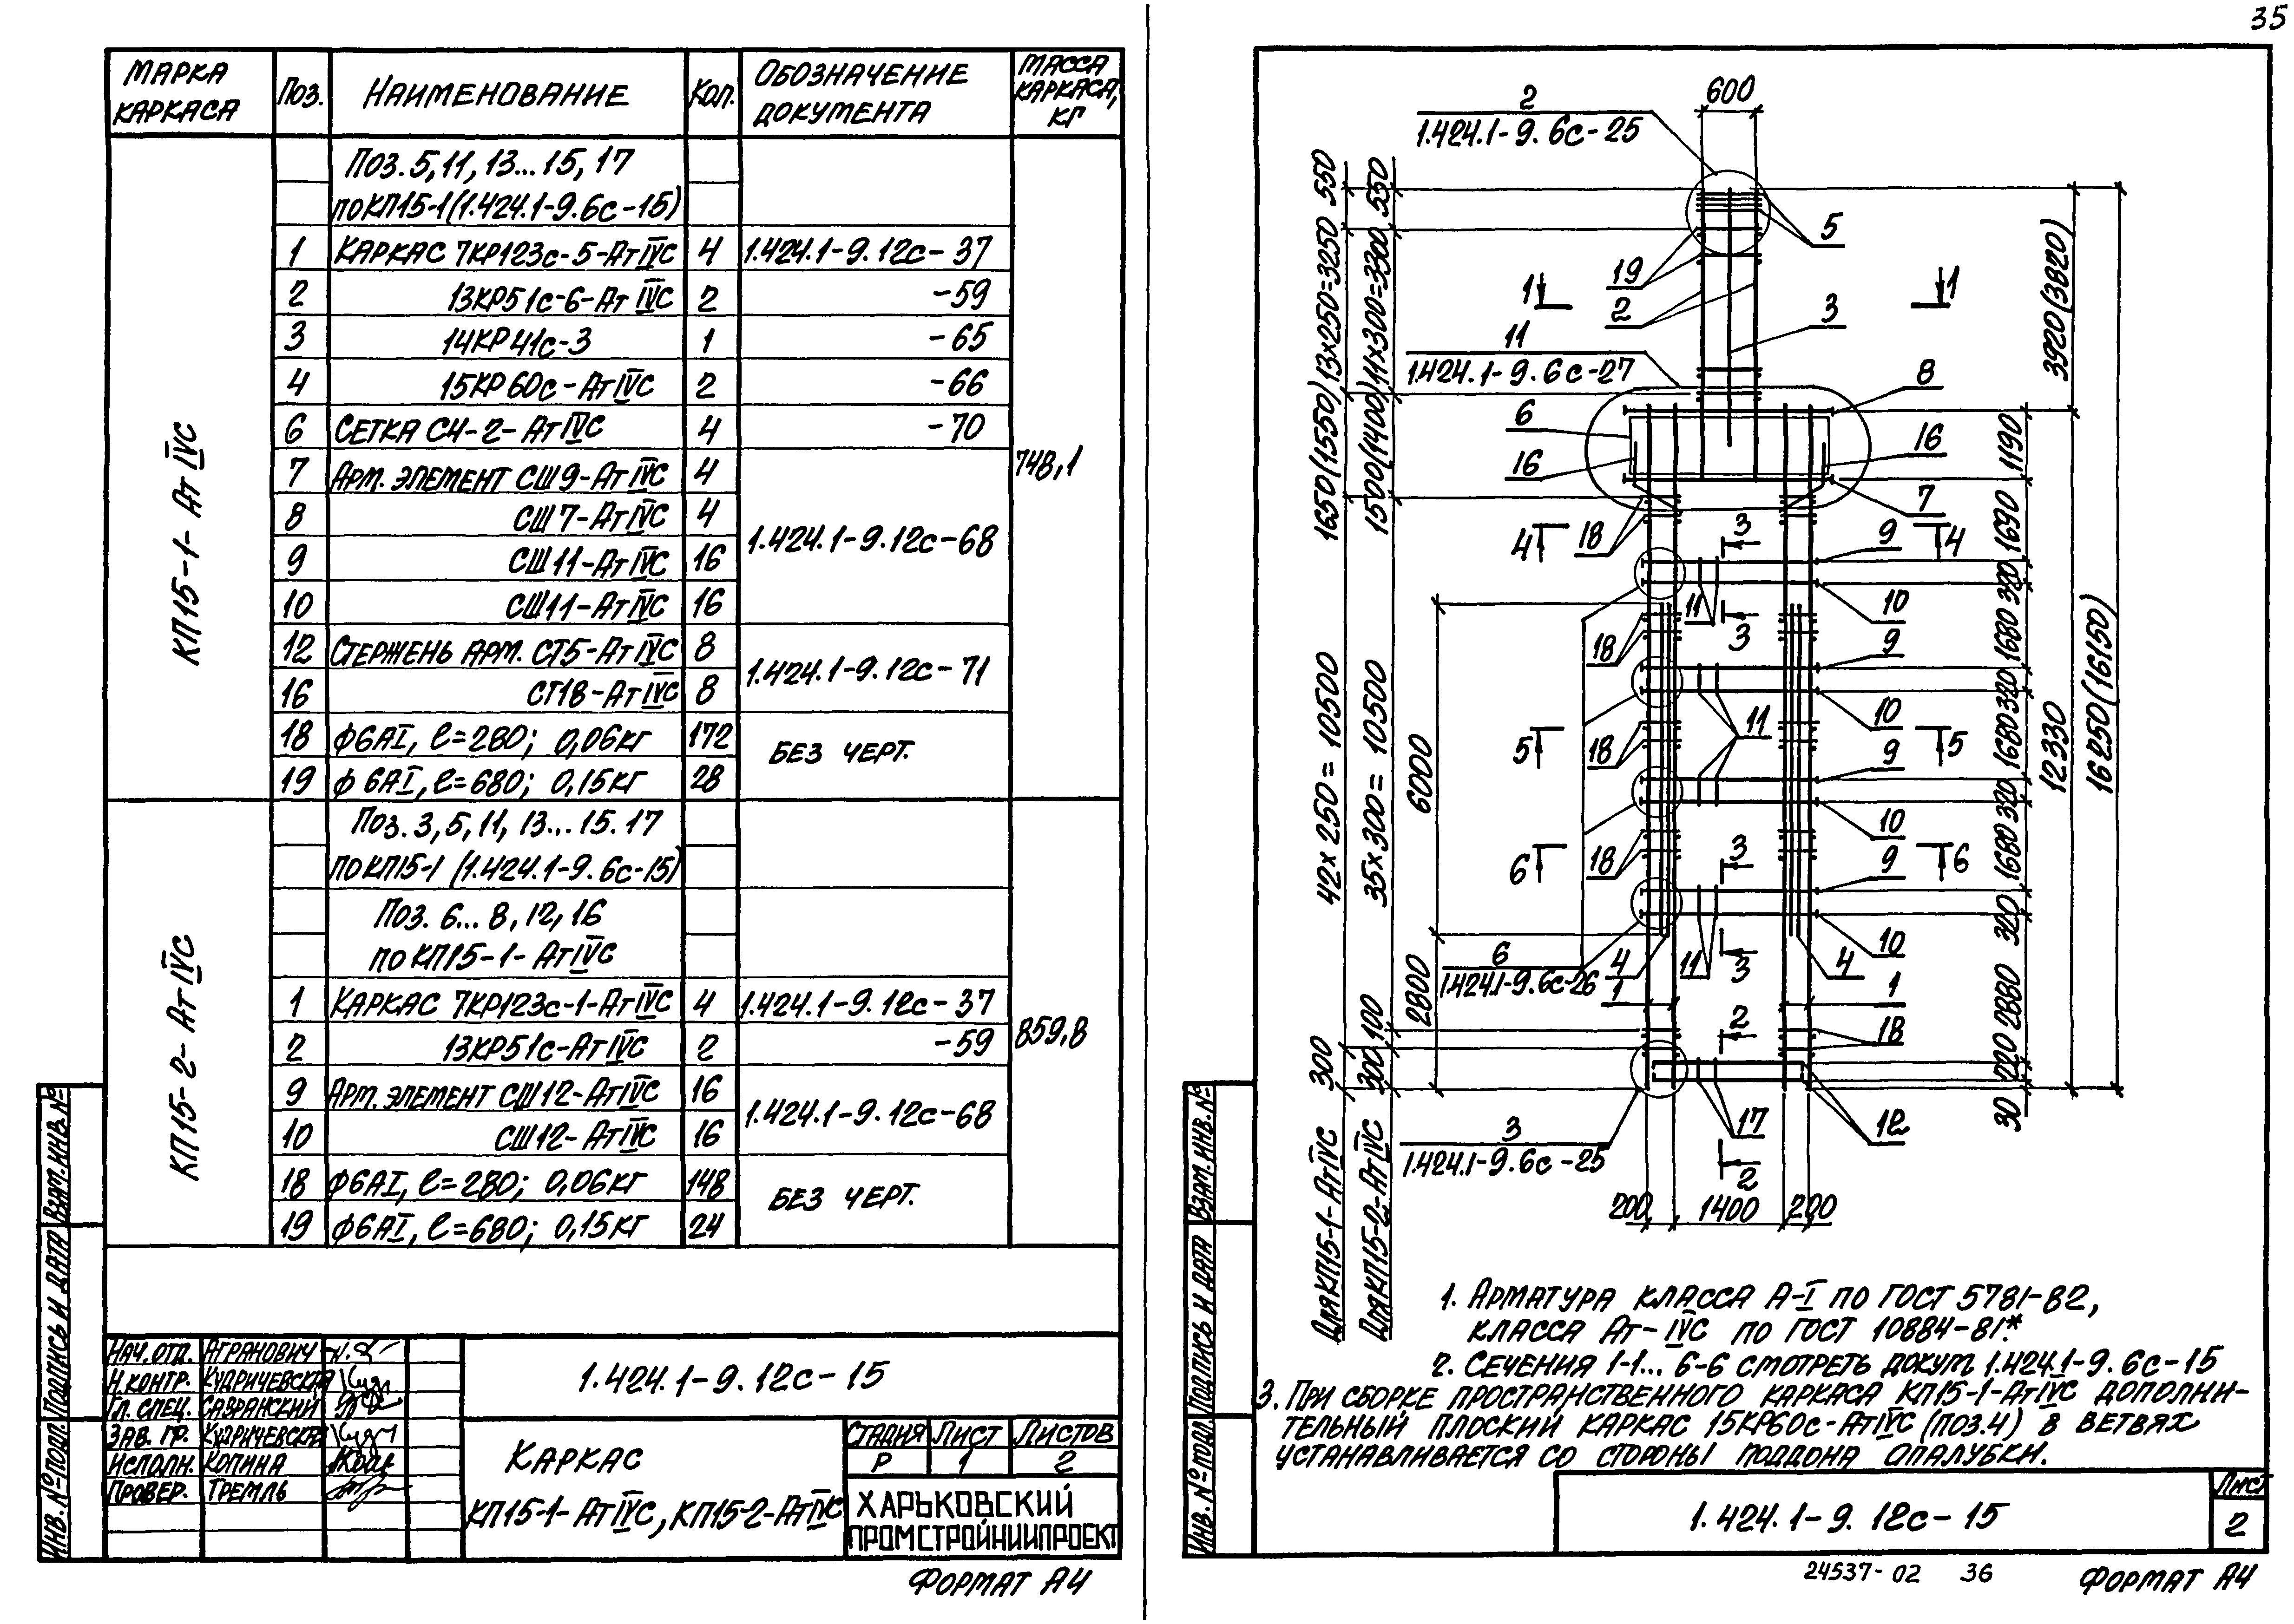 35
МАРКА КАРКАСА
Поз.
НАИМЕНОВАНИЕ
Кол.
ОБОЗНАЧЕНИЕ ДОКУМЕНТА
МАССА КАРКАСА, КГ
КП15-1-АтIVС
Поз. 5, 11, 13...15, 17
по КП15-1 (1.424.1-9.6с-15)
1 КАРКАС 7КР123с-5-АтIVС 4 1.424.1-9.12с-37
2 13КР51с-6-АтIVС 2 -59
3 14КР41с-3 1 -65
4 15КР60с-АтIVС 2 -66
6 СЕТКА С4-2-АтIVС 4 -70
748,1
7 АРМ. ЭЛЕМЕНТ СШ9-АтIVС 4
8 СШ7-АтIVС 4
1.424.1-9.12с-68
9 СШ11-АтIVС 16
10 СШ11-АтIVС 16
12 СТЕРЖЕНЬ АРМ. СТ5-АтIVС 8
1.424.1-9.12с-71
16 СТ18-АтIVС 8
18 ф6АI, ℓ=280; 0,06кг 172
БЕЗ ЧЕРТ.
19 ф6АI, ℓ=680; 0,15кг 28
КП15-2-АтIVС
Поз. 3, 5, 11, 13...15. 17
по КП15-1 (1.424.1-9.6с-15)
Поз. 6...8, 12, 16
по КП15-1-АтIVС
1 КАРКАС 7КР123с-1-АтIVС 4 1.424.1-9.12с-37
2 13КР51с-АтIVС 2 -59
859,8
9 АРМ. ЭЛЕМЕНТ СШ12-АтIVС 16
1.424.1-9.12с-68
10 СШ12-АтIVС 16
18 ф6АI, ℓ=280; 0,06кг 148
БЕЗ ЧЕРТ.
19 ф6АI, ℓ=680; 0,15кг 24
НАЧ. ОТД. АГРАНОВИЧ
Н.КОНТР. КУДРИЧЕВСКАЯ
ГЛ. СПЕЦ. САВРАНСКИЙ
ЗАВ. ГР. КУДРИЧЕВСКАЯ
ИСПОЛН. КОПИНА
ПРОВЕР. ТРЕМЛЬ
1.424.1-9.12с-15
КАРКАС
КП15-1-АтIVС, КП15-2-АтIVС
СТАДИЯ ЛИСТ ЛИСТОВ
Р 1 2
ХАРЬКОВСКИЙ
ПРОМСТРОЙНИИПРОЕКТ
ИНВ. № ПОДЛ.
ПОДПИСЬ И ДАТА
ВЗАМ. ИНВ. №
ФОРМАТ А4
600
2
1.424.1-9.6с-25
5
19
2
3
1
1
11
1.424.1-9.6с-27
8
6
16
16
7
18
4
4
3
9
10
11
3
18
9
10
11
5
5
18
9
10
18
6
6
3
9
10
6
1.424.1-9.6с-26
4
11
3
4
1
1
2
18
17
12
3
1.424.1-9.6с-25
2
200
1400
200
550
13×250=3250
1650(1550)
42×250=10500
300
Для КП15-1-АтIVС
550
11×300=3300
1500(1400)
35×300=10500
100
300
Для КП15-2-АтIVС
6000
2800
3920(3820)
12330
16250(16150)
1190
1690
320
1680
320
1680
320
1680
320
2880
220
30
1. АРМАТУРА КЛАССА А-I ПО ГОСТ 5781-82,
КЛАССА Ат-IVС ПО ГОСТ 10884-81.*
2. СЕЧЕНИЯ 1-1...6-6 СМОТРЕТЬ ДОКУМ. 1.424.1-9.6с-15
3. ПРИ СБОРКЕ ПРОСТРАНСТВЕННОГО КАРКАСА КП15-1-АтIVС ДОПОЛНИ-
ТЕЛЬНЫЙ ПЛОСКИЙ КАРКАС 15КР60с-АтIVС (ПОЗ.4) В ВЕТВЯХ
УСТАНАВЛИВАЕТСЯ СО СТОРОНЫ ПОДДОНА ОПАЛУБКИ.
1.424.1-9.12с-15
Лист
2
ИНВ. № ПОДЛ.
ПОДПИСЬ И ДАТА
ВЗАМ. ИНВ. №
24537-02 36
ФОРМАТ А4